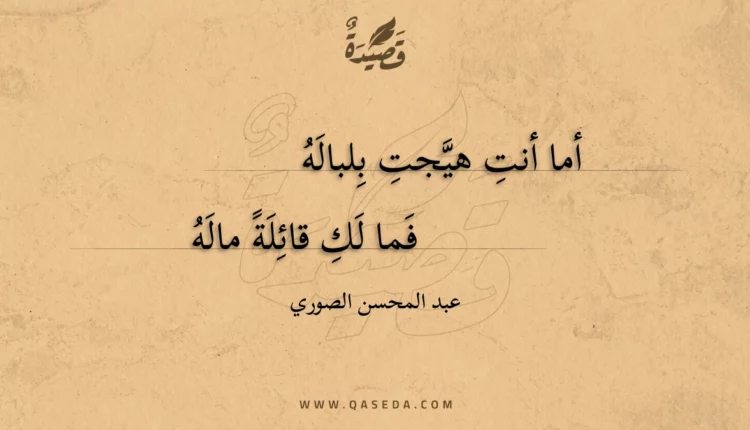 قَصِيدَةٌ
أما أنتِ هيَّجتِ بِلبالَهُ
فَما لَكِ قائِلَةً مالَهُ
عبد المحسن الصوري
WWW.QASEDA.COM